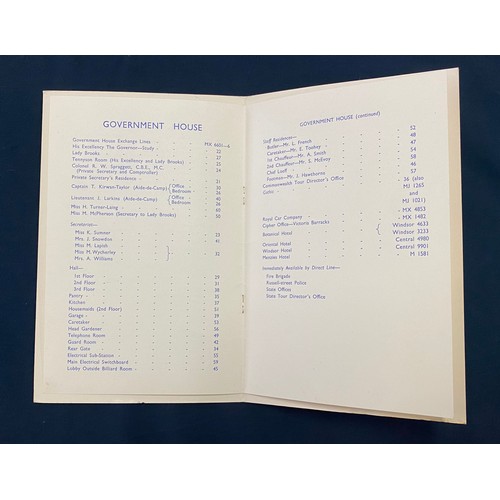 GOVERNMENT HOUSE
Government House Exchange Lines - MX 4601—6
His Excellency The Governor—Study - 22
Lady Brooks - 27
Tennyson Room (His Excellency and Lady Brooks) - 25
Colonel R. W. Spraggett, C.B.E., M.C. 24
(Private Secretary and Comptroller)
Private Secretary's Residence - 51
Captain T. Kirwan-Taylor (Aide-de-Camp) { Office - 30
Bedroom - 26
Lieutenant J. Larkins (Aide-de-Camp) { Office - 40
Bedroom - 26
Miss H. Turner-Laing - 60
Miss M. McPherson (Secretary to Lady Brooks) 50
Secretaries—
Miss K. Sumner - 23
Mrs. J. Snowdon - 41
Miss M. Lapish
Miss M. Wycherley } 32
Mrs. A. Williams
Hall—
1st Floor - 29
2nd Floor - 31
3rd Floor - 38
Pantry - 35
Kitchen - 37
Housemaids (2nd Floor) - 31
Garage - 39
Caretaker - 53
Head Gardener - 56
Telephone Room - 49
Guard Room - 42
Rear Gate - 34
Electrical Sub-Station - 55
Main Electrical Switchboard - 59
Lobby Outside Billiard Room - 45
GOVERNMENT HOUSE (continued)
Staff Residences— 52
Butler—Mr. L. French - 48
Caretaker—Mr. E. Toohey - 47
1st Chauffeur—Mr. A. Smith - 54
2nd Chauffeur—Mr. S. McEvoy - 58
Chef Loeff - 46
Footman—Mr. J. Hawthorne - 57
Commonwealth Tour Director's Office - 36 (also
MJ 1265
and
MJ 1021)
Royal Car Company - MX 4853
Cipher Office—Victoria Barracks - MX 1482
Botanical Hotel - { Windsor 4633
Windsor 3233
Oriental Hotel - Central 4980
Windsor Hotel - Central 9901
Menzies Hotel - M 1581
Immediately Available by Direct Line—
Fire Brigade
Russell-street Police
State Offices
State Tour Director's Office